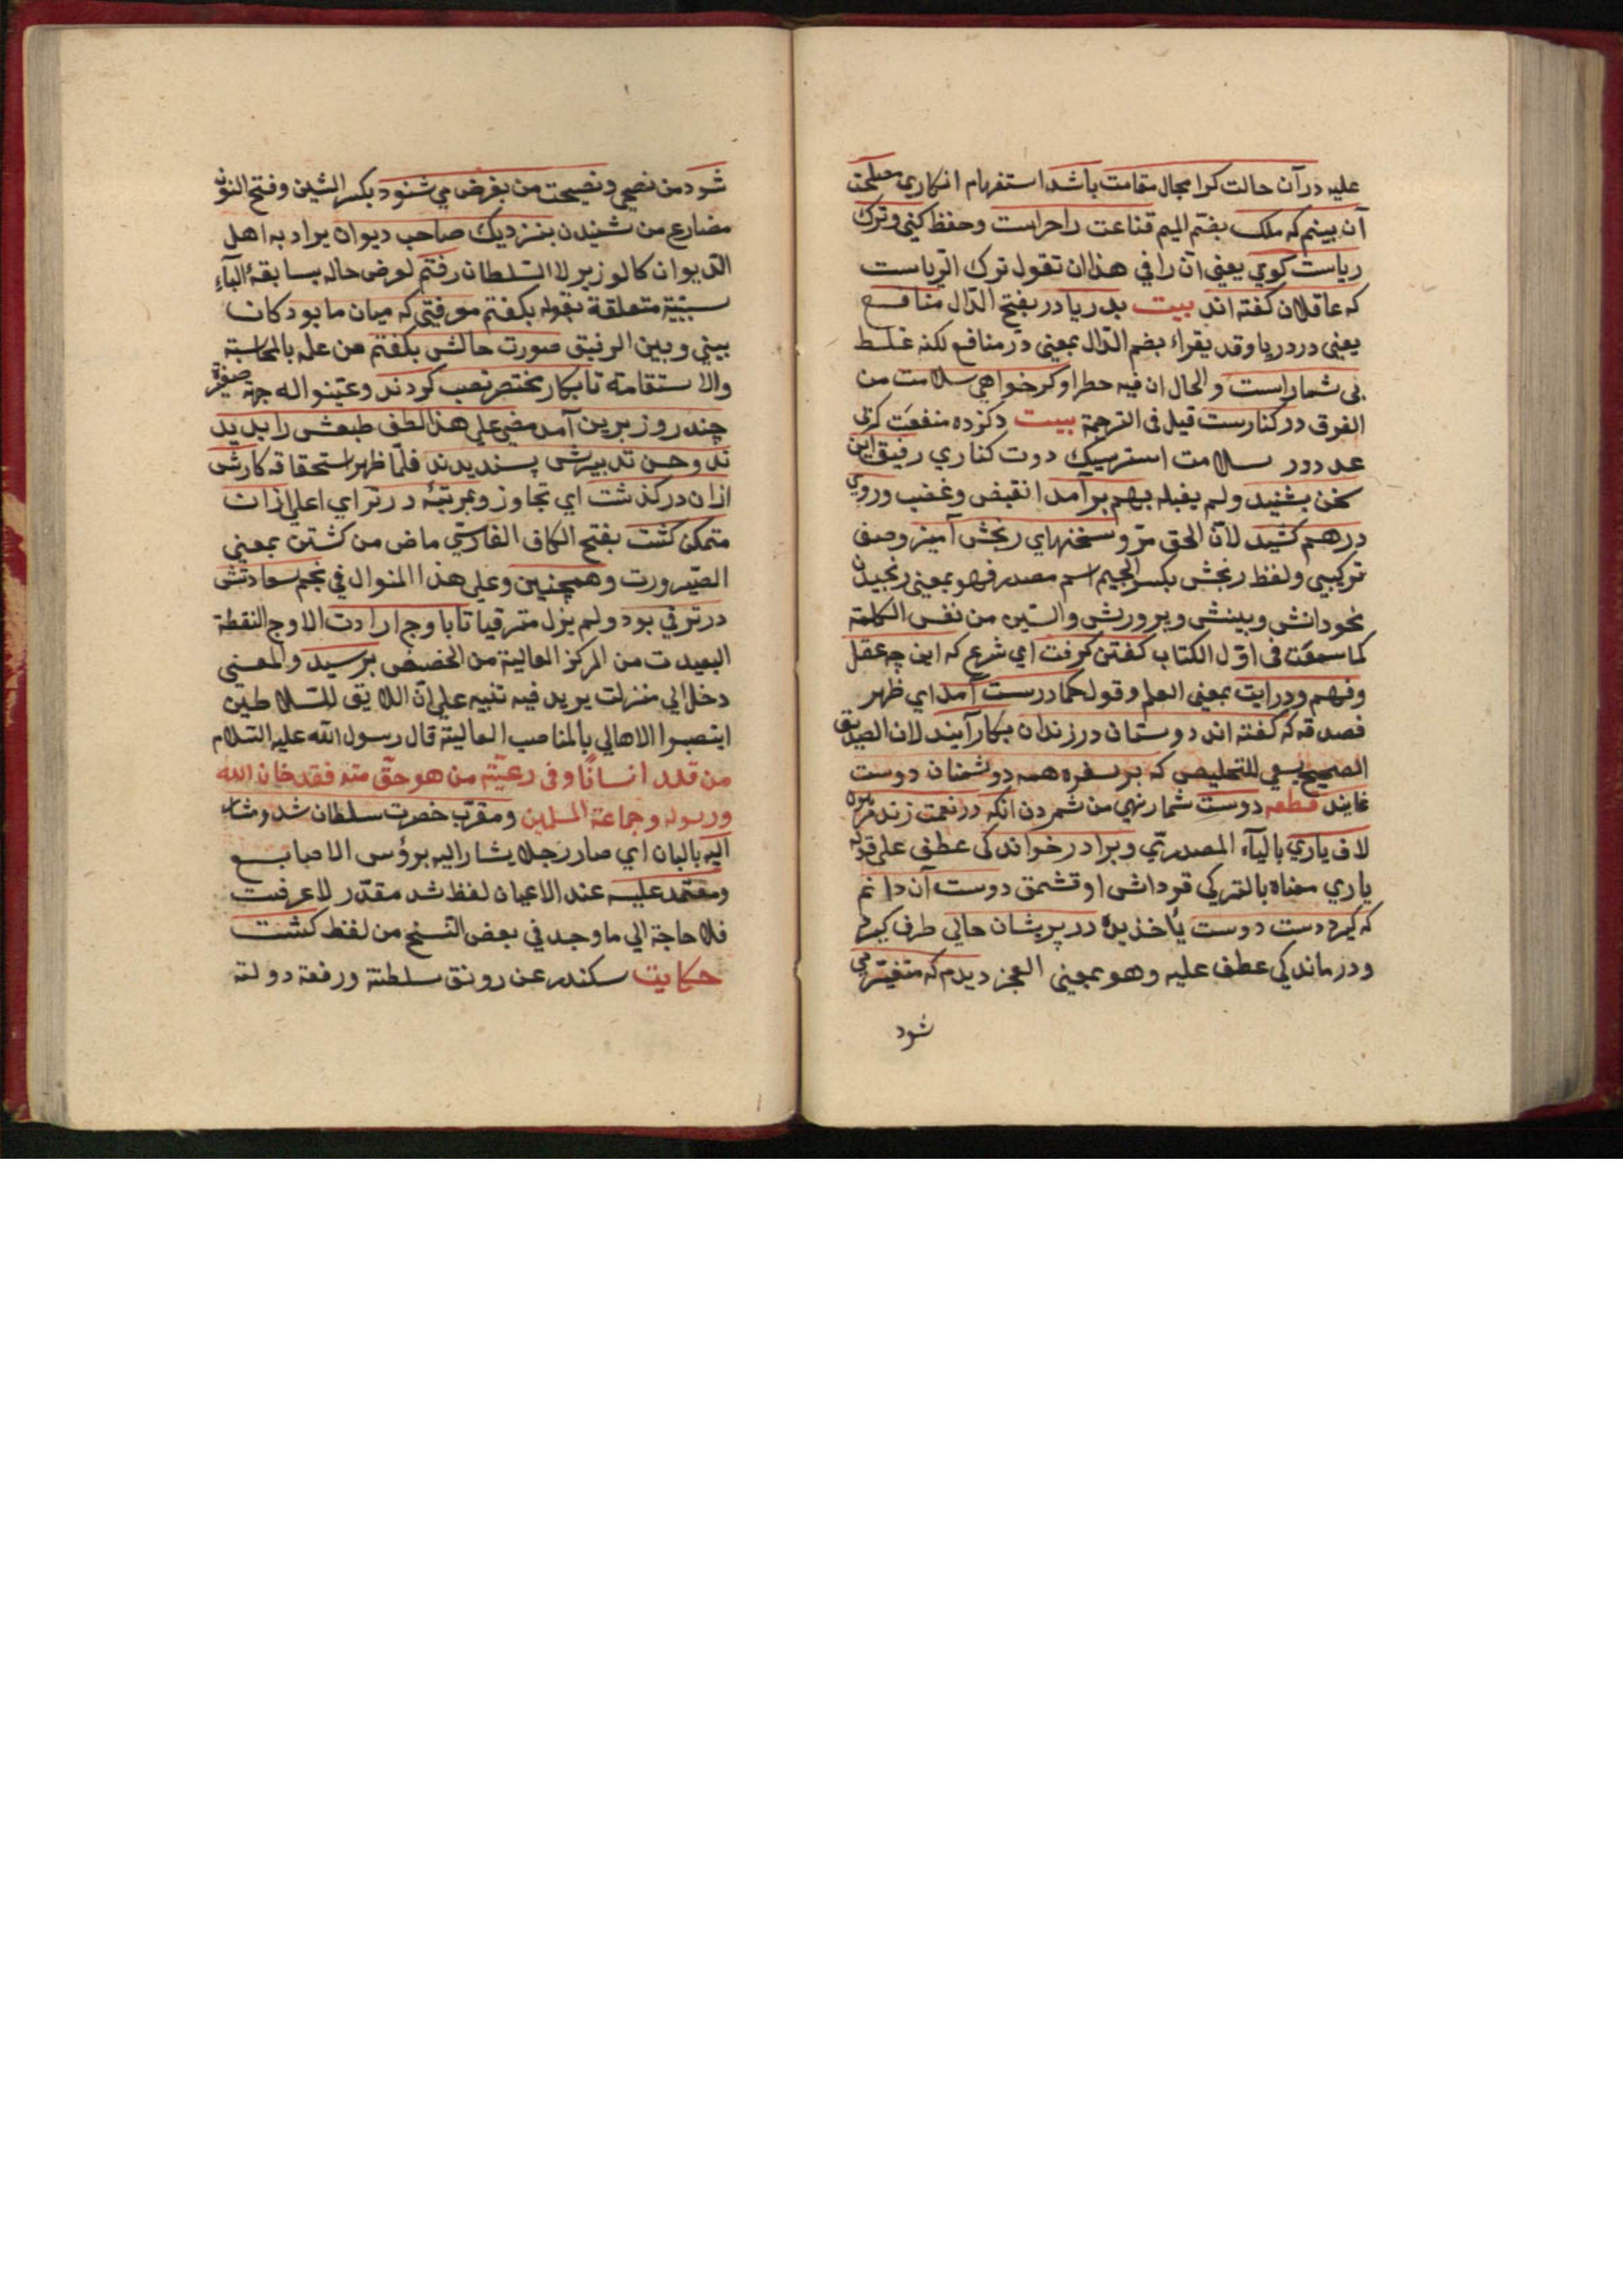 عليه درآن حالت كرا مجال مقامت باشد استفهام انكاري مصلحت
آن بينم كه ملك بضم الميم قناعت را حراست وحفظ كني وترك
رياست كوي يعني ان رافي هذا ان تقول ترك الرياست
كه عاقلان كفته اند بيت بدريا در بفتح الدال منافع
يعني دردريا وقد يقراء بضم الدال بمعنى در منافع لكنه غلط
بي شماراست والحال ان فيه خطرا وكر خواهي سلامت من
الفرق دركنارست قيل في الترجمة بيت دكزده منفعت كرچ
عددور سلامت استرسك دوت كناري رفيق اين
سخن بشنيد ولم يقبله بهم برآمد انقبض وغضب وروي
درهم كشيد لان الحق مر وسخنهاي رنجش آميز وصف
تركيبي ولفظ رنجش بكسر الجيم اسم مصدر فهو بمعنى رنجيدن
نحو دانش وبينش وپرورش والشين من نفس الكلمة
كما سمعت في اول الكتاب كفتن كرفت اي شرع كه اين چه عقل
وفهم ودرايت بمعنى العلم وقول حكما درست آمد اي ظهر
فصدقه كه كفته اند دوستان درزندان بكار آيند لان الصديق
الصحيح يسعي للتخليص كه بر سفره همه دوشمنان دوست
نمايند قطعه دوست شمار نهي من شمردن انكه درنعمت زند
لاف ياري بالياء المصدري وبرادر خواندكي عطف على قوله
ياري معناه بالتركي قرداش اوقشمق دوست آن دانم
كه كيرد دست دوست يأخذ يده در پريشان حالي طرف كيرد
ودرماندكي عطف عليه وهو بمعنى العجز ديدم كه متغير مي
شود
شود من نصحي ونصيحت من بغرض مي شنود بكسر الشين وفتح النون
مضارع من شنيدن بنزديك صاحب ديوان يراد به اهل
الديوان كالوزير لا السلطان رفتم لعرض حاله بسابقۀ الباء
سببية متعلقة بقوله بكفتم معرفتي كه ميان ما بود كان
بيني وبين الرفيق صورت حالش بكفتم من علمه بالمحاسبة
والاستقامة تا بكار مختصر نصب كردند وعينوا له جهة صغيرة
چند روز برين آمد مضى على هذا لطف طبعش را بديد
ند وحسن تدبيرش پسنديدند فلما ظهر استحقاقه كارش
ازان دركذشت اي تجاوز وبمرتبۀ برتر اي اعلى ازان
متمكن كشت بفتح الكاف الفارسي ماض من كشتن بمعنى
الصيرورت وهمچنين وعلى هذا المنوال في نجم سعادتش
درترقي بود ولم يزل مترقيا تا باوج ارادت الاوج النقطة
البعيدت من المركز العالية من الحضيض برسيد والمعنى
دخل الي منزلت يريد فيه تنبيه على ان اللايق للسلاطين
اينصبوا الاهالي بالمناصب العالية قال رسول الله عليه السلام
من قلد انسانا وفي رعيته من هو حق منه فقد خان الله
ورسوله وجماعة المسلمين ومقرب حضرت سلطان شد ومشار
اليه بالبان اي صار رجلا يشار اليه برؤس الاصابع
ومعتمد عليه عند الاعيان لفظ شد مقدر لا عرفت
فلا حاجة الي ما وجد في بعض النسخ من لفظ كشت
حكايت سكندر عن رونق سلطنة ورفعة دولته